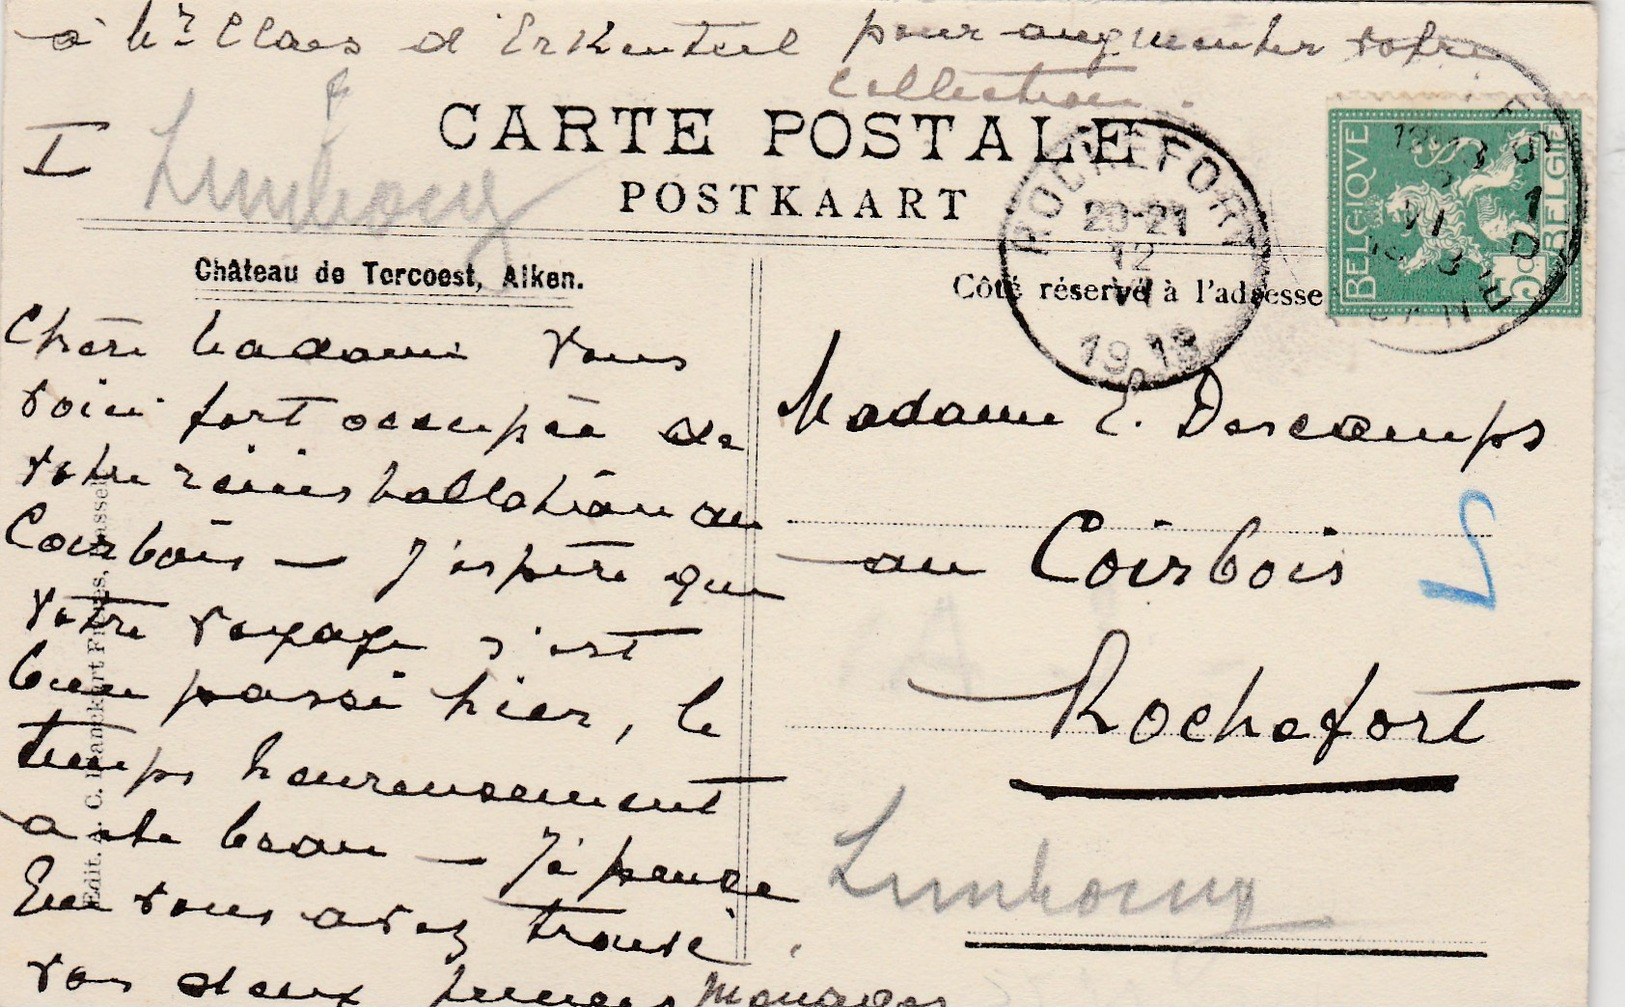 à Mr Claes d'Erkenteel pour augmenter votre
collection.
CARTE POSTALE
POSTKAART
I
Limbourg
Château de Tercoest, Alken.
Côté réservé à l'adresse
ROCHEFORT
20-21
12
VI
1913
BELGIQUE
BELGIË
5
Chère Madame vous
voici fort occupée de
votre réinstallation au
Coirbois — J'espère que
votre voyage s'est
bien passé hier, le
temps heureusement
a été beau — Je pense
que vous avez trouvé
vos deux jeunes ménages
Madame E. Descamps
au Coirbois
Rochefort
Limbourg
Edit. A. C. Hanckart Frères, Hasselt